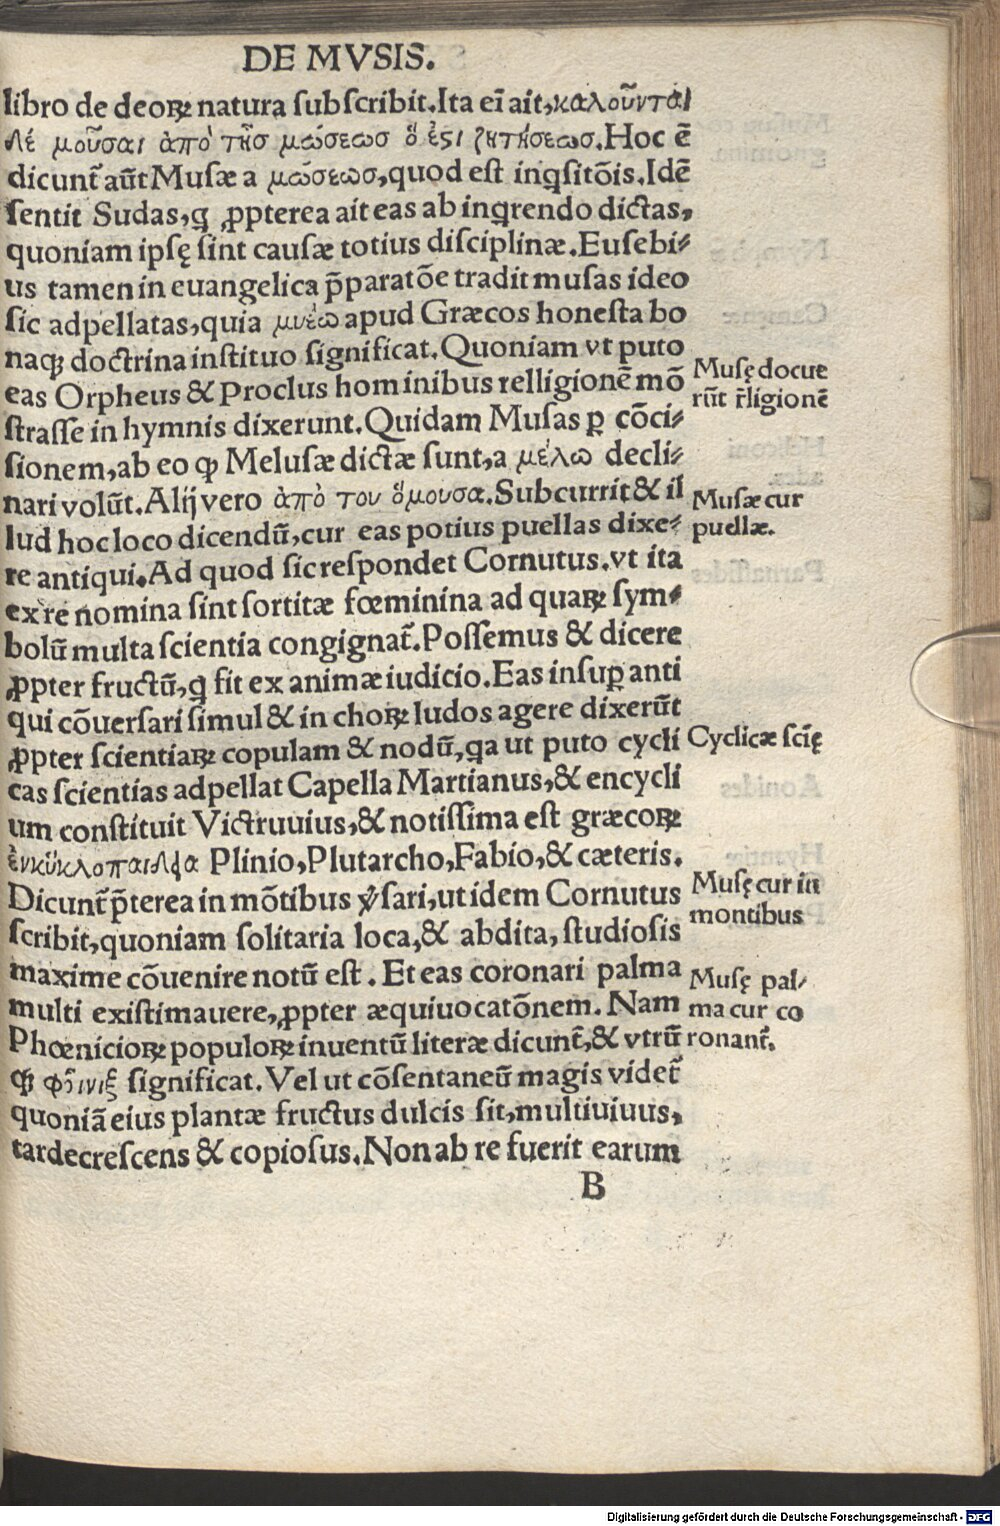 DE MVSIS.
libro de deoꝝ natura subscribit. Ita eī ait, καλοῦνται
δὲ μοῦσαι ἀπὸ τῆσ μώσεωσ ὅ ἐϛι ζητήσεωσ. Hoc ē
dicunt̃ aūt Musæ a μώσεωσ, quod est inꝗsitōis. Idē
sentit Sudas, ꝗ ꝓpterea ait eas ab inꝗrendo dictas,
quoniam ipsę sint causæ totius disciplinæ. Eusebi⸗
us tamen in euangelica p̄paratōe tradit musas ideo
sic adpellatas, quia μυέω apud Græcos honesta bo
naqꝫ doctrina instituo significat. Quoniam vt puto
eas Orpheus & Proclus hominibus relligionē mō
strasse in hymnis dixerunt. Quidam Musas ꝑ cōci⸗
sionem, ab eo ꝙ Melusæ dictæ sunt, a μέλω decli⸗
nari volūt. Alij vero ἀπὸ του ὅμουσα. Subcurrit & il
lud hoc loco dicendū, cur eas potius puellas dixe⸗
re antiqui. Ad quod sic respondet Cornutus. vt ita
ex re nomina sint sortitæ fœminina ad quaꝝ sym⸗
bolū multa scientia congignat̃. Possemus & dicere
ꝓpter fructū, ꝗ fit ex animæ iudicio. Eas insuꝑ anti
qui cōuersari simul & in choꝝ ludos agere dixerūt
ꝓpter scientiaꝝ copulam & nodū, ꝗa ut puto cycli
cas scientias adpellat Capella Martianus, & encycli
um constituit Victruuius, & notissima est græcoꝝ
ἐνκύκλοπαιδεία Plinio, Plutarcho, Fabio, & cæteris.
Dicunt̃ p̄terea in mōtibus v̾sari, ut idem Cornutus
scribit, quoniam solitaria loca, & abdita, studiosis
maxime cōuenire notū est. Et eas coronari palma
multi existimauere, ꝓpter æquiuocatōnem. Nam
Phœnicioꝝ populoꝝ inuentū literæ dicunt̃, & vtrū
ꝙ φοῖνιξ significat. Vel ut cōsentaneū magis videt̃
quoniā eius plantæ fructus dulcis sit, multiuiuus,
tardecrescens & copiosus. Non ab re fuerit earum
B
Musę docue
rūt r̃ligionē
Musæ cur
puellæ.
Cyclicæ scię̄
Musę cur in
montibus
Musę pal⸗
ma cur co
ronant̃.
Digitalisierung gefördert durch die Deutsche Forschungsgemeinschaft - DFG